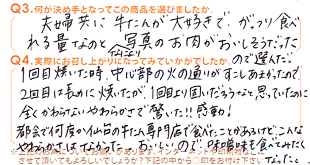 Q3.何が決め手となってこの商品を選びましたか。
夫婦共に牛たんが大好きで、がっつり食べ
れる量なのと写真のお肉がおいしそうだった
ので選んだ。
Q4.実際にお召し上がりになってみていかがでしたか。
1回目焼いた時、中心部の火の通りがすこしあまかったので
2回目は長めに焼いたが、1回目より固いだろうなと思っていたのに
全くかわらないやわらかさで驚いた!!感動!
都会で何度か仙台の牛たん専門店で食べたことがあるけどこんな
やわらかさではなかった。おいしいので味噌味も食べてみたく
なった。
させて頂いてもよろしいでしょうか?下記の中から○印をお付け下さい。